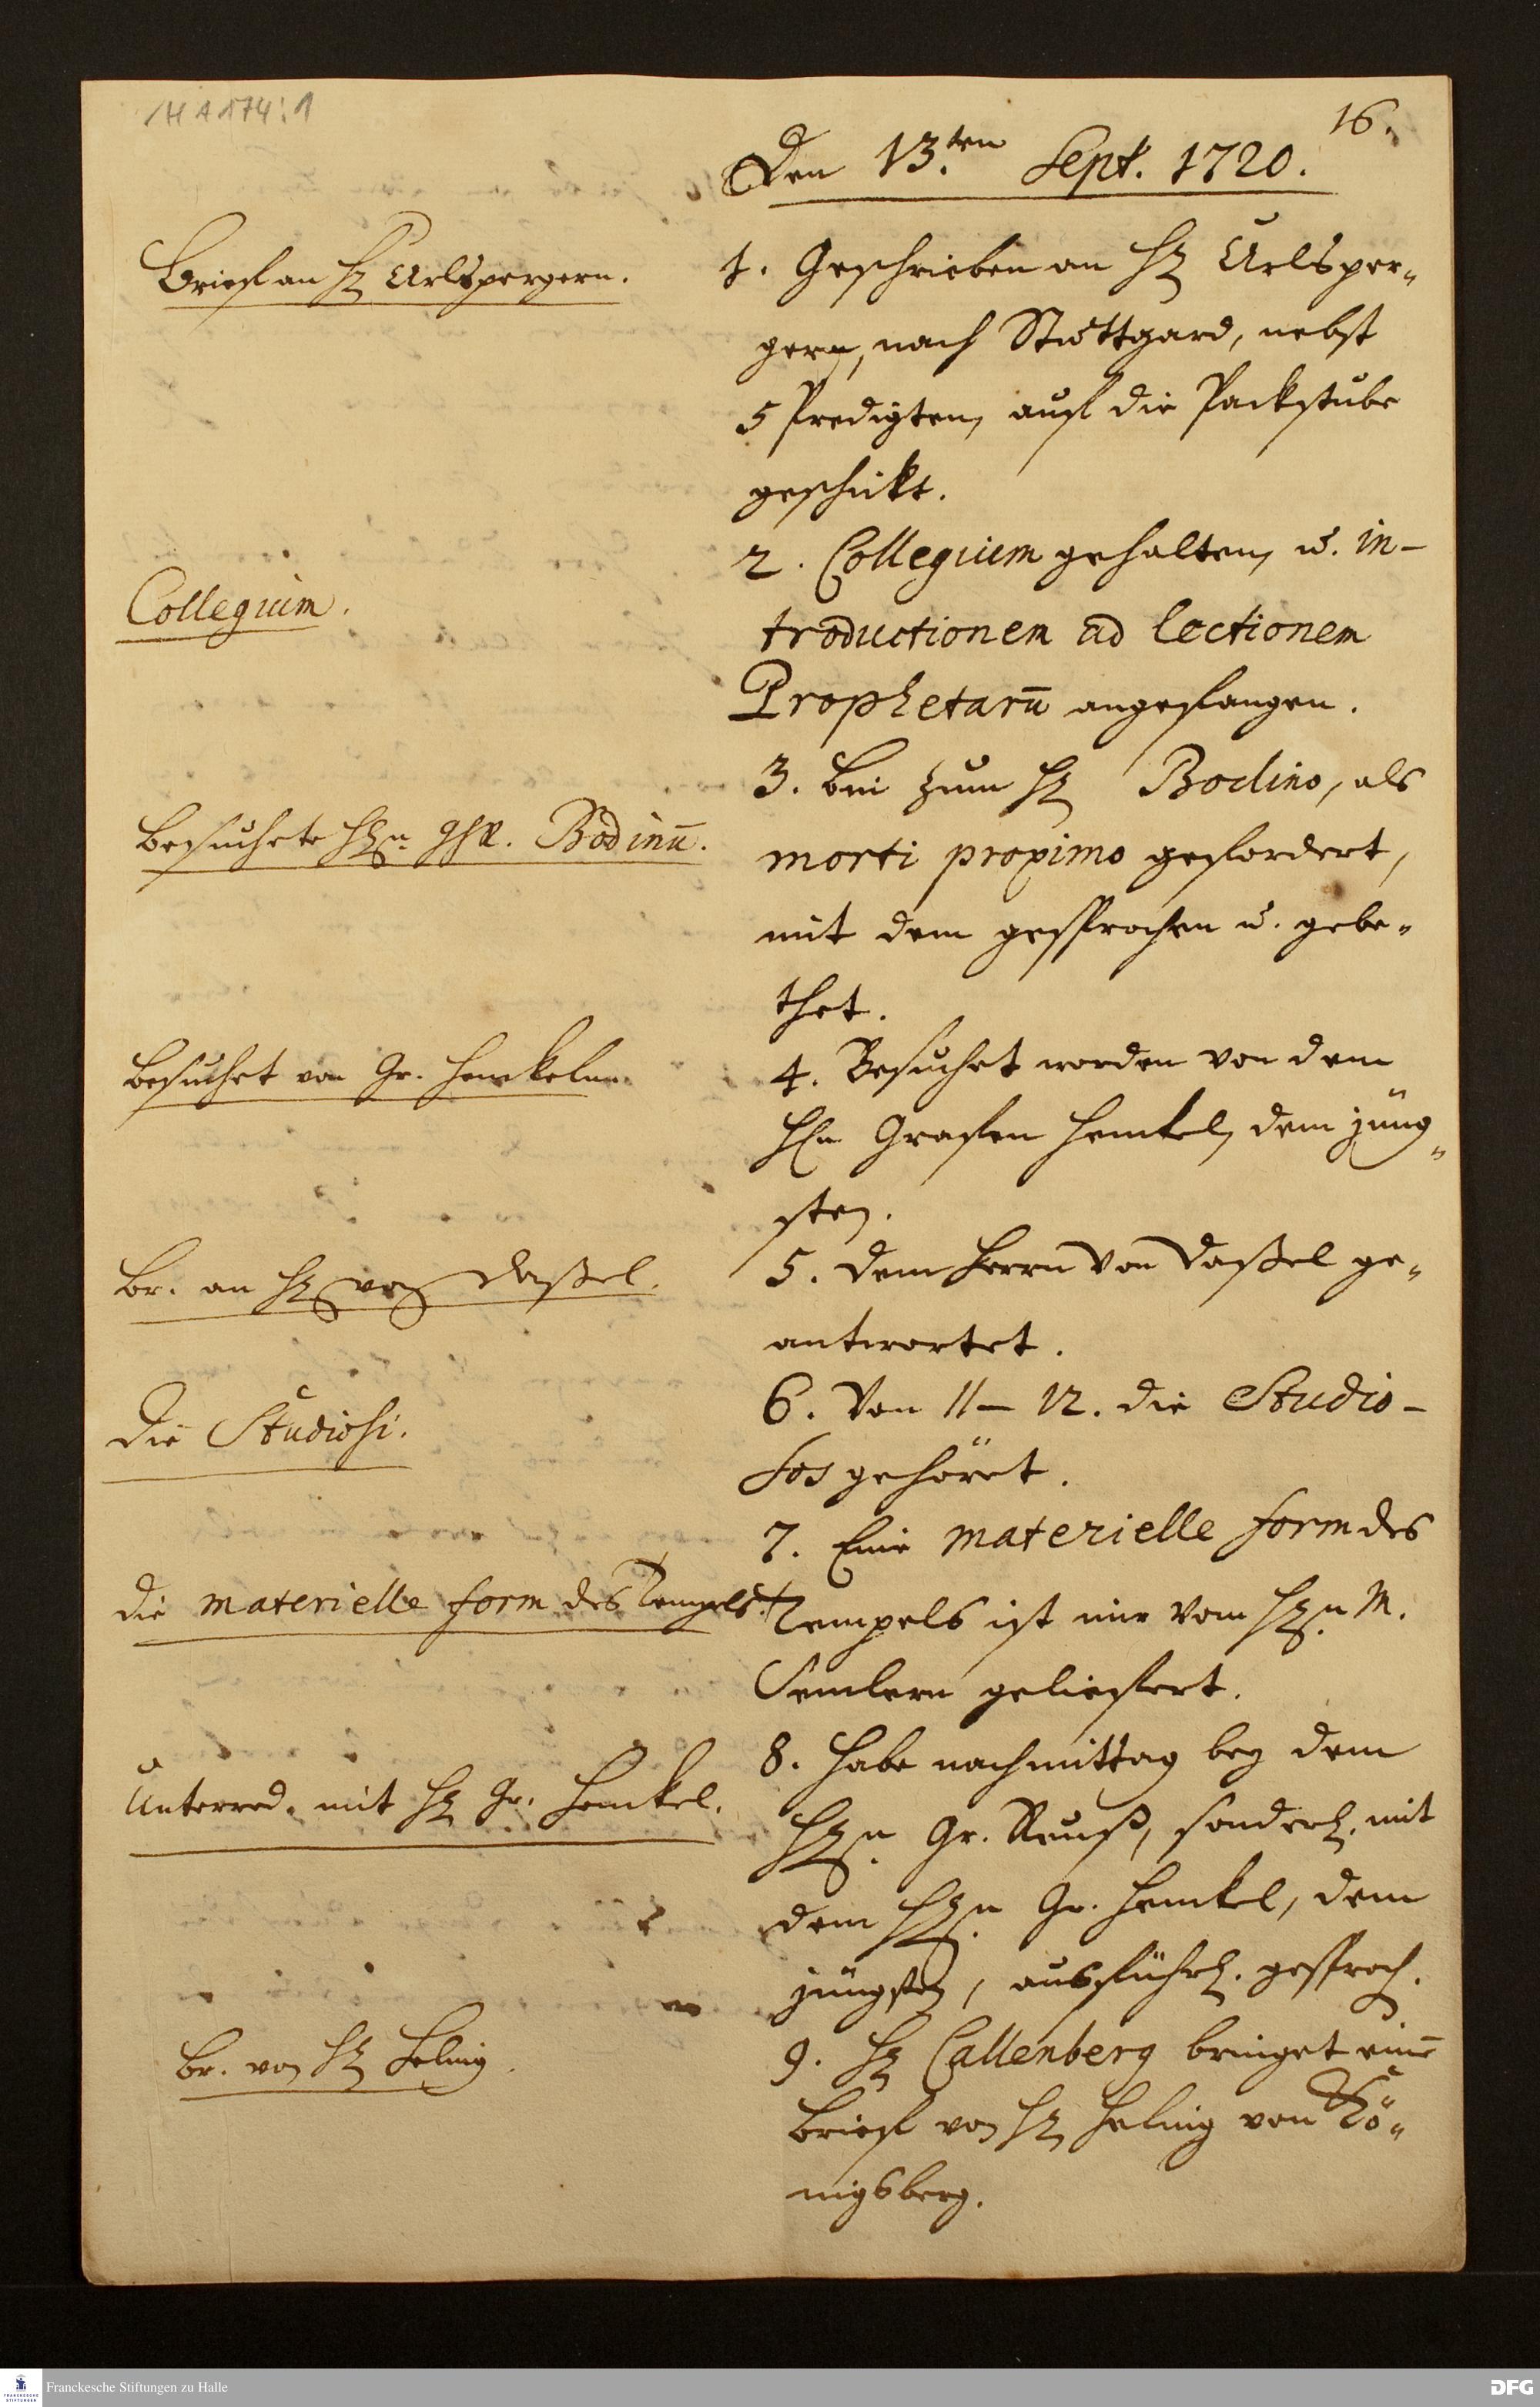 /H A 174:1
16.
Den 13.ten Sept. 1720.
Brief an H. Urlspergern.
1. Geschrieben an H. Urlsper-
gern, nach Stuttgard, nebst
5 Predigten, auf die Packstube
geschickt.
Collegium.
2. Collegium gehalten, u. in-
troductionem ad lectionem
Prophetarū angefangen.
Besuchete HEn. Bodinū.
3. Bin zum H. Bodino, als
morti proximo gefordert,
mit dem gesprochen u. gebe-
thet.
Besuchet von Gr. Henkeln.
4. Besuchet worden von dem
HEn Grafen Henkel, dem jüng-
sten.
Br. an H. von Daßel.
5. Dem Herrn von Daßel ge-
antwortet.
Die Studiosi.
6. Von 11 – 12. die Studio-
sos gehöret.
Die materielle form des Tempels.
7. Eine materielle form des
Tempels ist mir vom HEn. M.
Semlern geliefert.
Unterred. mit H. Gr. Henkel.
8. Habe nachmittag bey dem
HEn. Gr. Reuß, sonderl. mit
dem HEn. Gr. Henkel, dem
jüngsten, ausführl. gesproch.
Br. von H. Helmig.
9. H. Callenberg bringet einē
Brief von H. Helmig von Kö-
nigsberg.
FRANCKESCHE STIFTUNGEN
Franckesche Stiftungen zu Halle
DFG